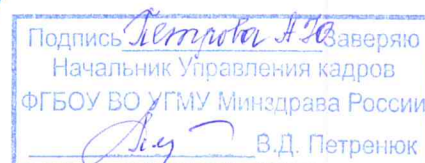 Подпись Петрова А.Ю. Заверяю
Начальник Управления кадров
ФГБОУ ВО УГМУ Минздрава России
В.Д. Петренюк